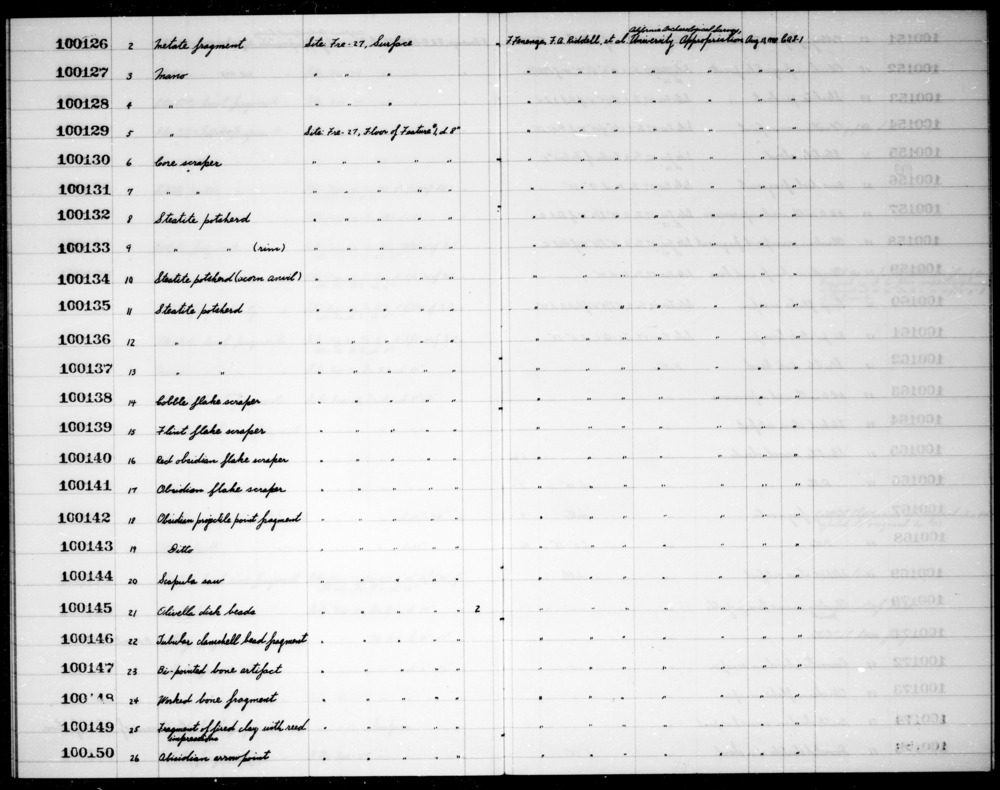 100126 2 Metate fragment Site: Fre-27, Surface F. Fenenga, F.A. Riddell, et al. California Archaeological Survey, University Appropriation Aug
100127 3 Mano " " " " " " "
100128 4 " " " " " " " "
100129 5 " Site: Fre-27, Floor of Feature #1, d. 8" " " " "
100130 6 Core scraper " " " " " " " " "
100131 7 " " " " " " " " " " "
100132 8 Steatite potsherd " " " " " " " " "
100133 9 " " (rim) " " " " " " " " "
100134 10 Steatite potsherd (acorn anvil) " " " " " " " " "
100135 11 Steatite potsherd " " " " " " " " "
100136 12 " " " " " " " " " " "
100137 13 " " " " " " " " " " "
100138 14 Cobble flake scraper " " " " " " " " "
100139 15 Flint flake scraper " " " " " " " " "
100140 16 Red obsidian flake scraper " " " " " " " " "
100141 17 Obsidian flake scraper " " " " " " " " "
100142 18 Obsidian projectile point fragment " " " " " " " " "
100143 19 Ditto " " " " " " " " "
100144 20 Scapula saw " " " " " " " " "
100145 21 Olivella disk beads " " " " " 2 " " " "
100146 22 Tubular clamshell bead fragment " " " " " " " " "
100147 23 Bi-pointed bone artifact " " " " " " " " "
100148 24 Worked bone fragment " " " " " " " " "
100149 25 Fragment of fired clay with reed impressions " " " " " " " " "
100150 26 Obsidian arrowpoint " " " " " " " " "